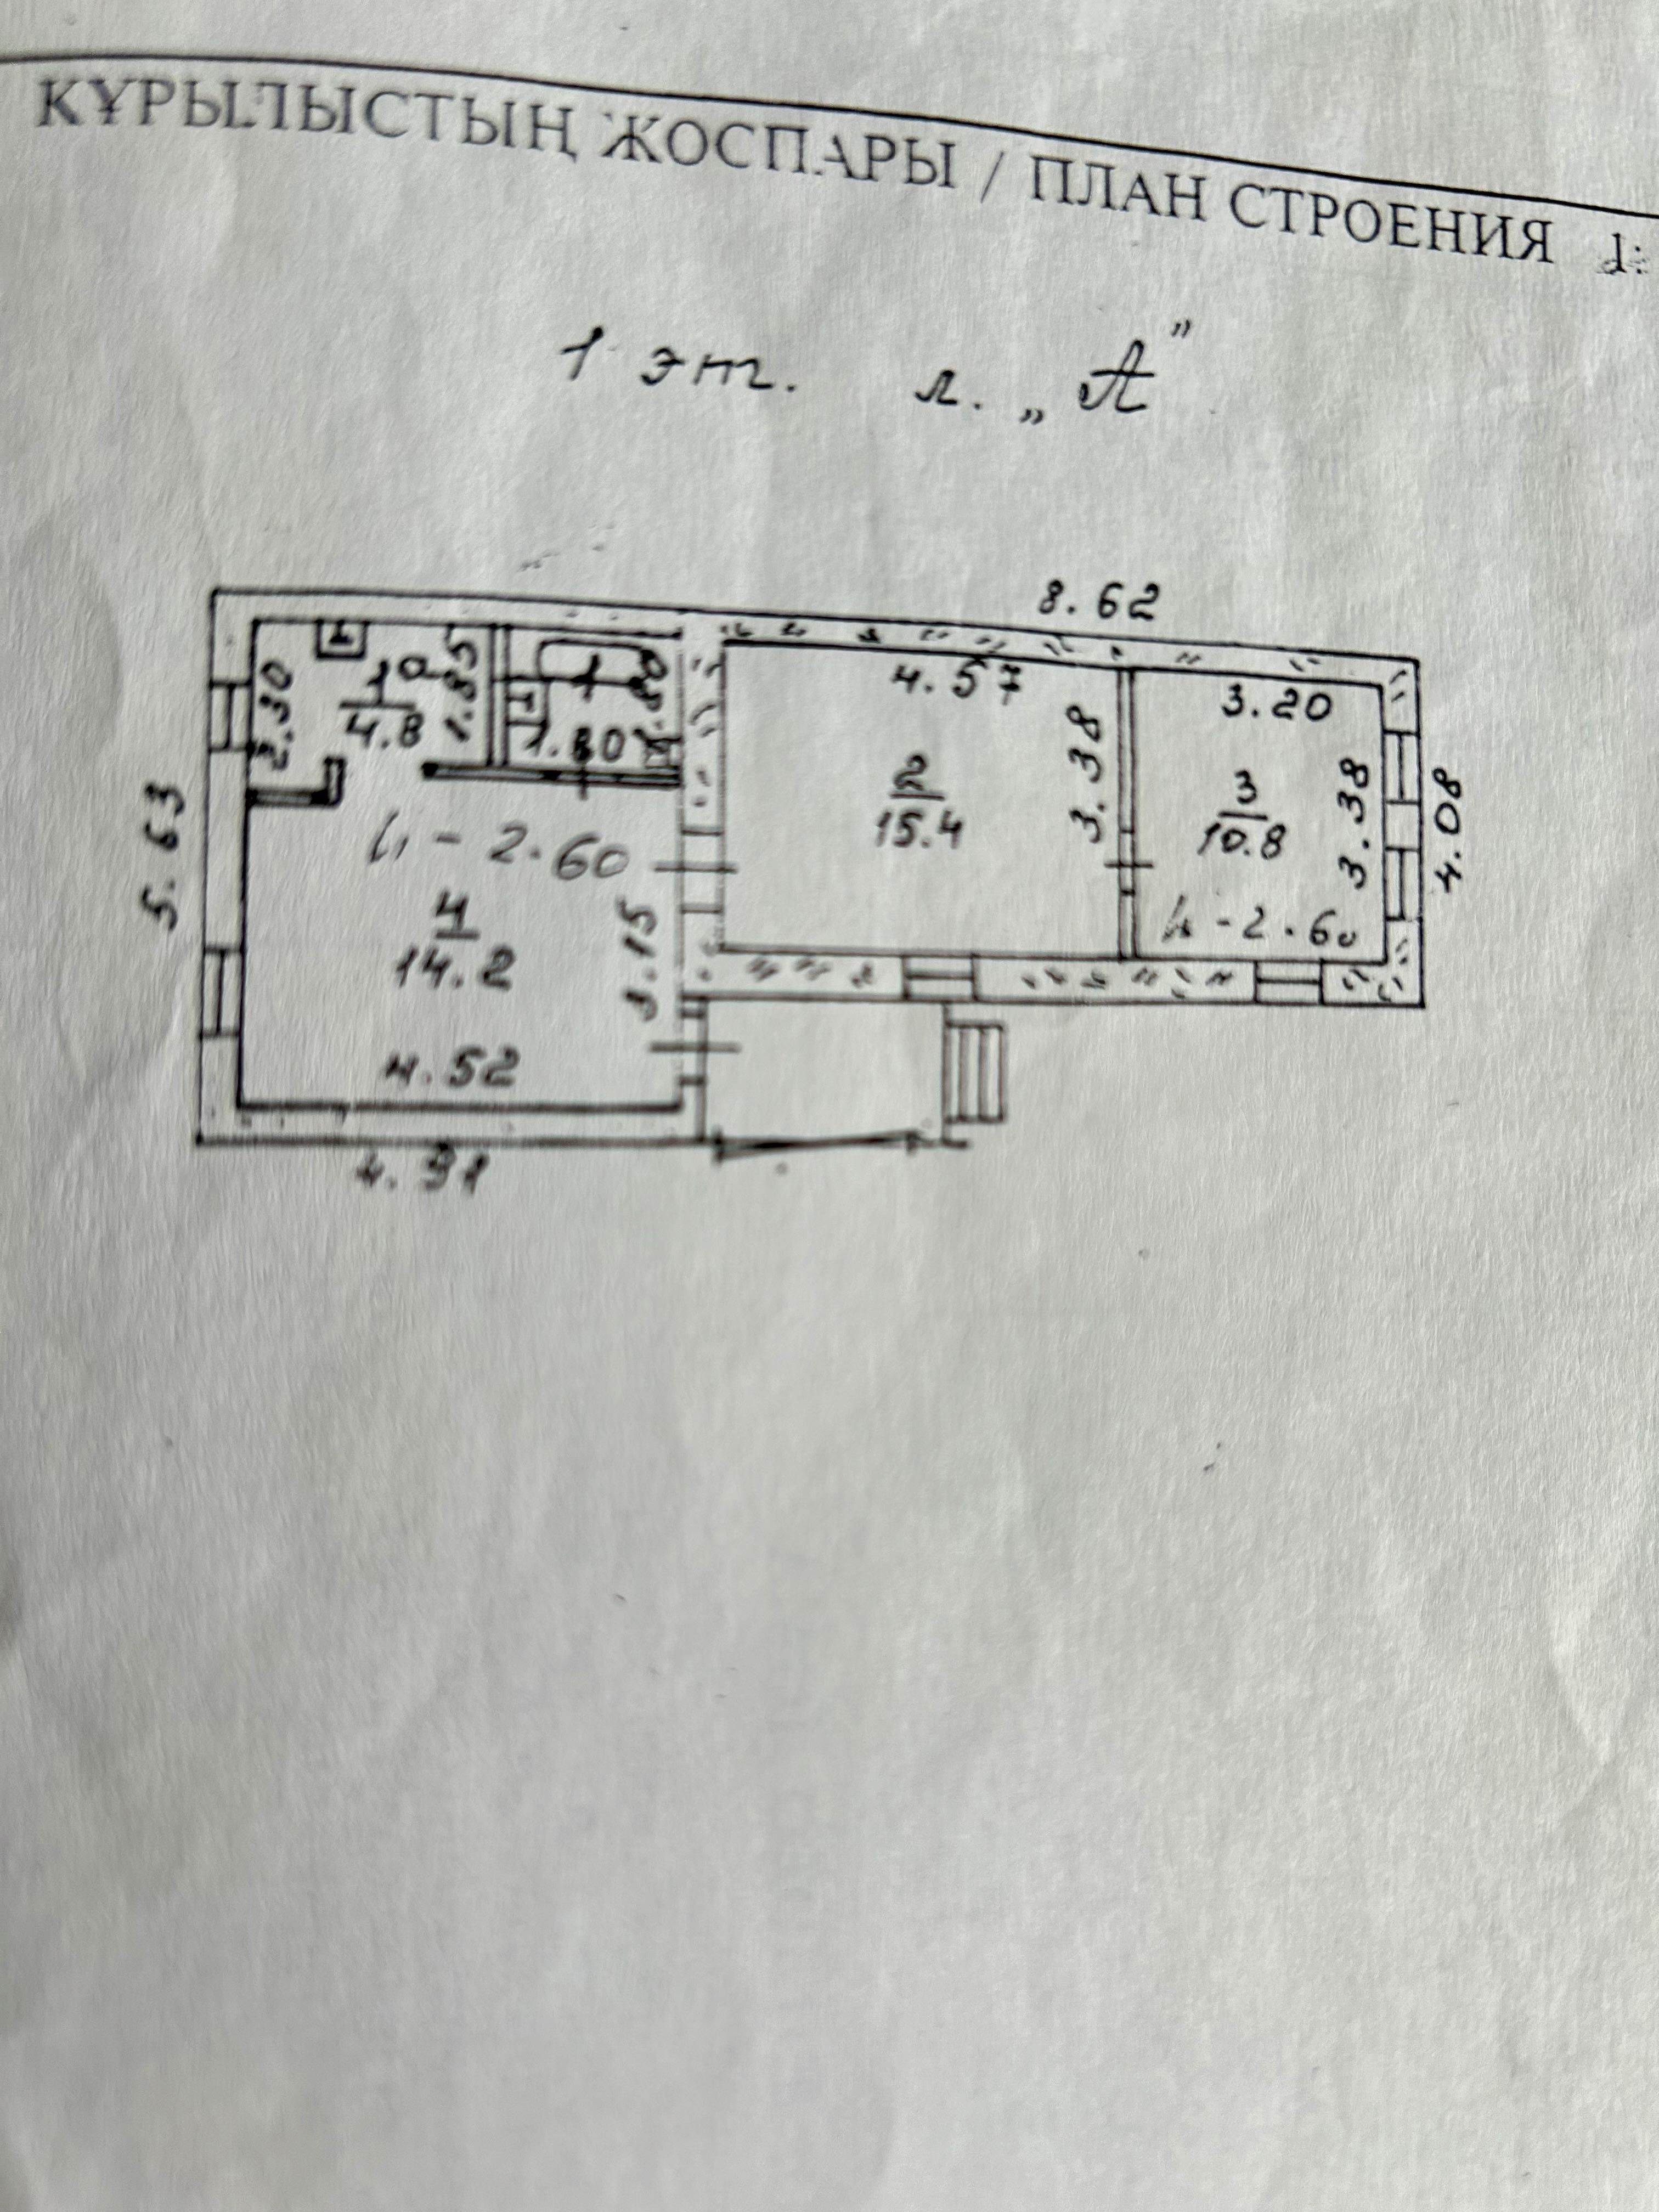 ҚҰРЫЛЫСТЫҢ ЖОСПАРЫ / ПЛАН СТРОЕНИЯ
1 эт. л. „А”
8.62
2.30
1
4.8
1.85
1.80
4.57
3.20
2
15.4
3.38
3
10.8
3.38
4.08
5.63
h - 2.60
h - 2.60
4
14.2
3.15
4.52
4.91